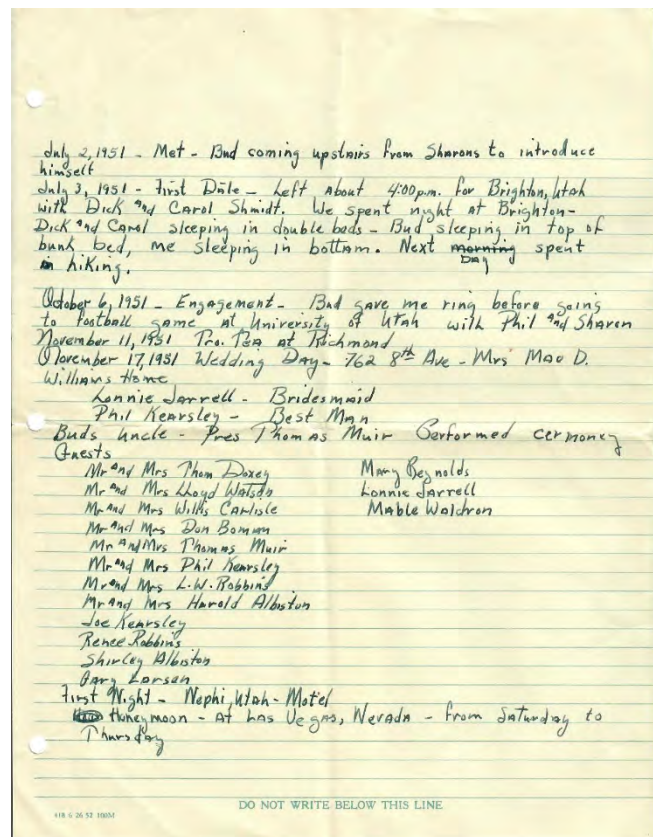 July 2, 1951 - Met - Bud coming upstairs from Sharons to introduce
himself
July 3, 1951 - First Date - Left About 4:00p.m. for Brighton, Utah
with Dick and Carol Shmidt. We spent night at Brighton -
Dick and Carol sleeping in double beds - Bud sleeping in top of
bunk bed, me sleeping in bottam. Next morning Day spent
hiking.
October 6, 1951 - Engagement - Bud gave me ring before going
to football game at University of Utah with Phil and Sharon
November 11, 1951 Tro. Tea at Richmond
November 17, 1951 Wedding Day - 762 8th Ave - Mrs Mae D.
Williams Home
Lonnie Jarrell - Bridesmaid
Phil Kearsley - Best Man
Buds Uncle - Pres Thomas Muir Performed cermoney
Guests
Mr and Mrs Thom Doxey
Mary Reynolds
Mr and Mrs Lloyd Watson
Lonnie Jarrell
Mr and Mrs Willis Carlisle
Mable Waldron
Mr and Mrs Don Boman
Mr and Mrs Thomas Muir
Mr and Mrs Phil Kearsley
Mr and Mrs L.W. Robbins
Mr and Mrs Harold Albiston
Joe Kearsley
Renee Robbins
Shirley Albiston
Gary Larsen
First Night - Nephi, Utah - Motel
Honeymoon - At Las Vegas, Nevada - From Saturday to
Thursday
DO NOT WRITE BELOW THIS LINE
418 6 26 52 100M